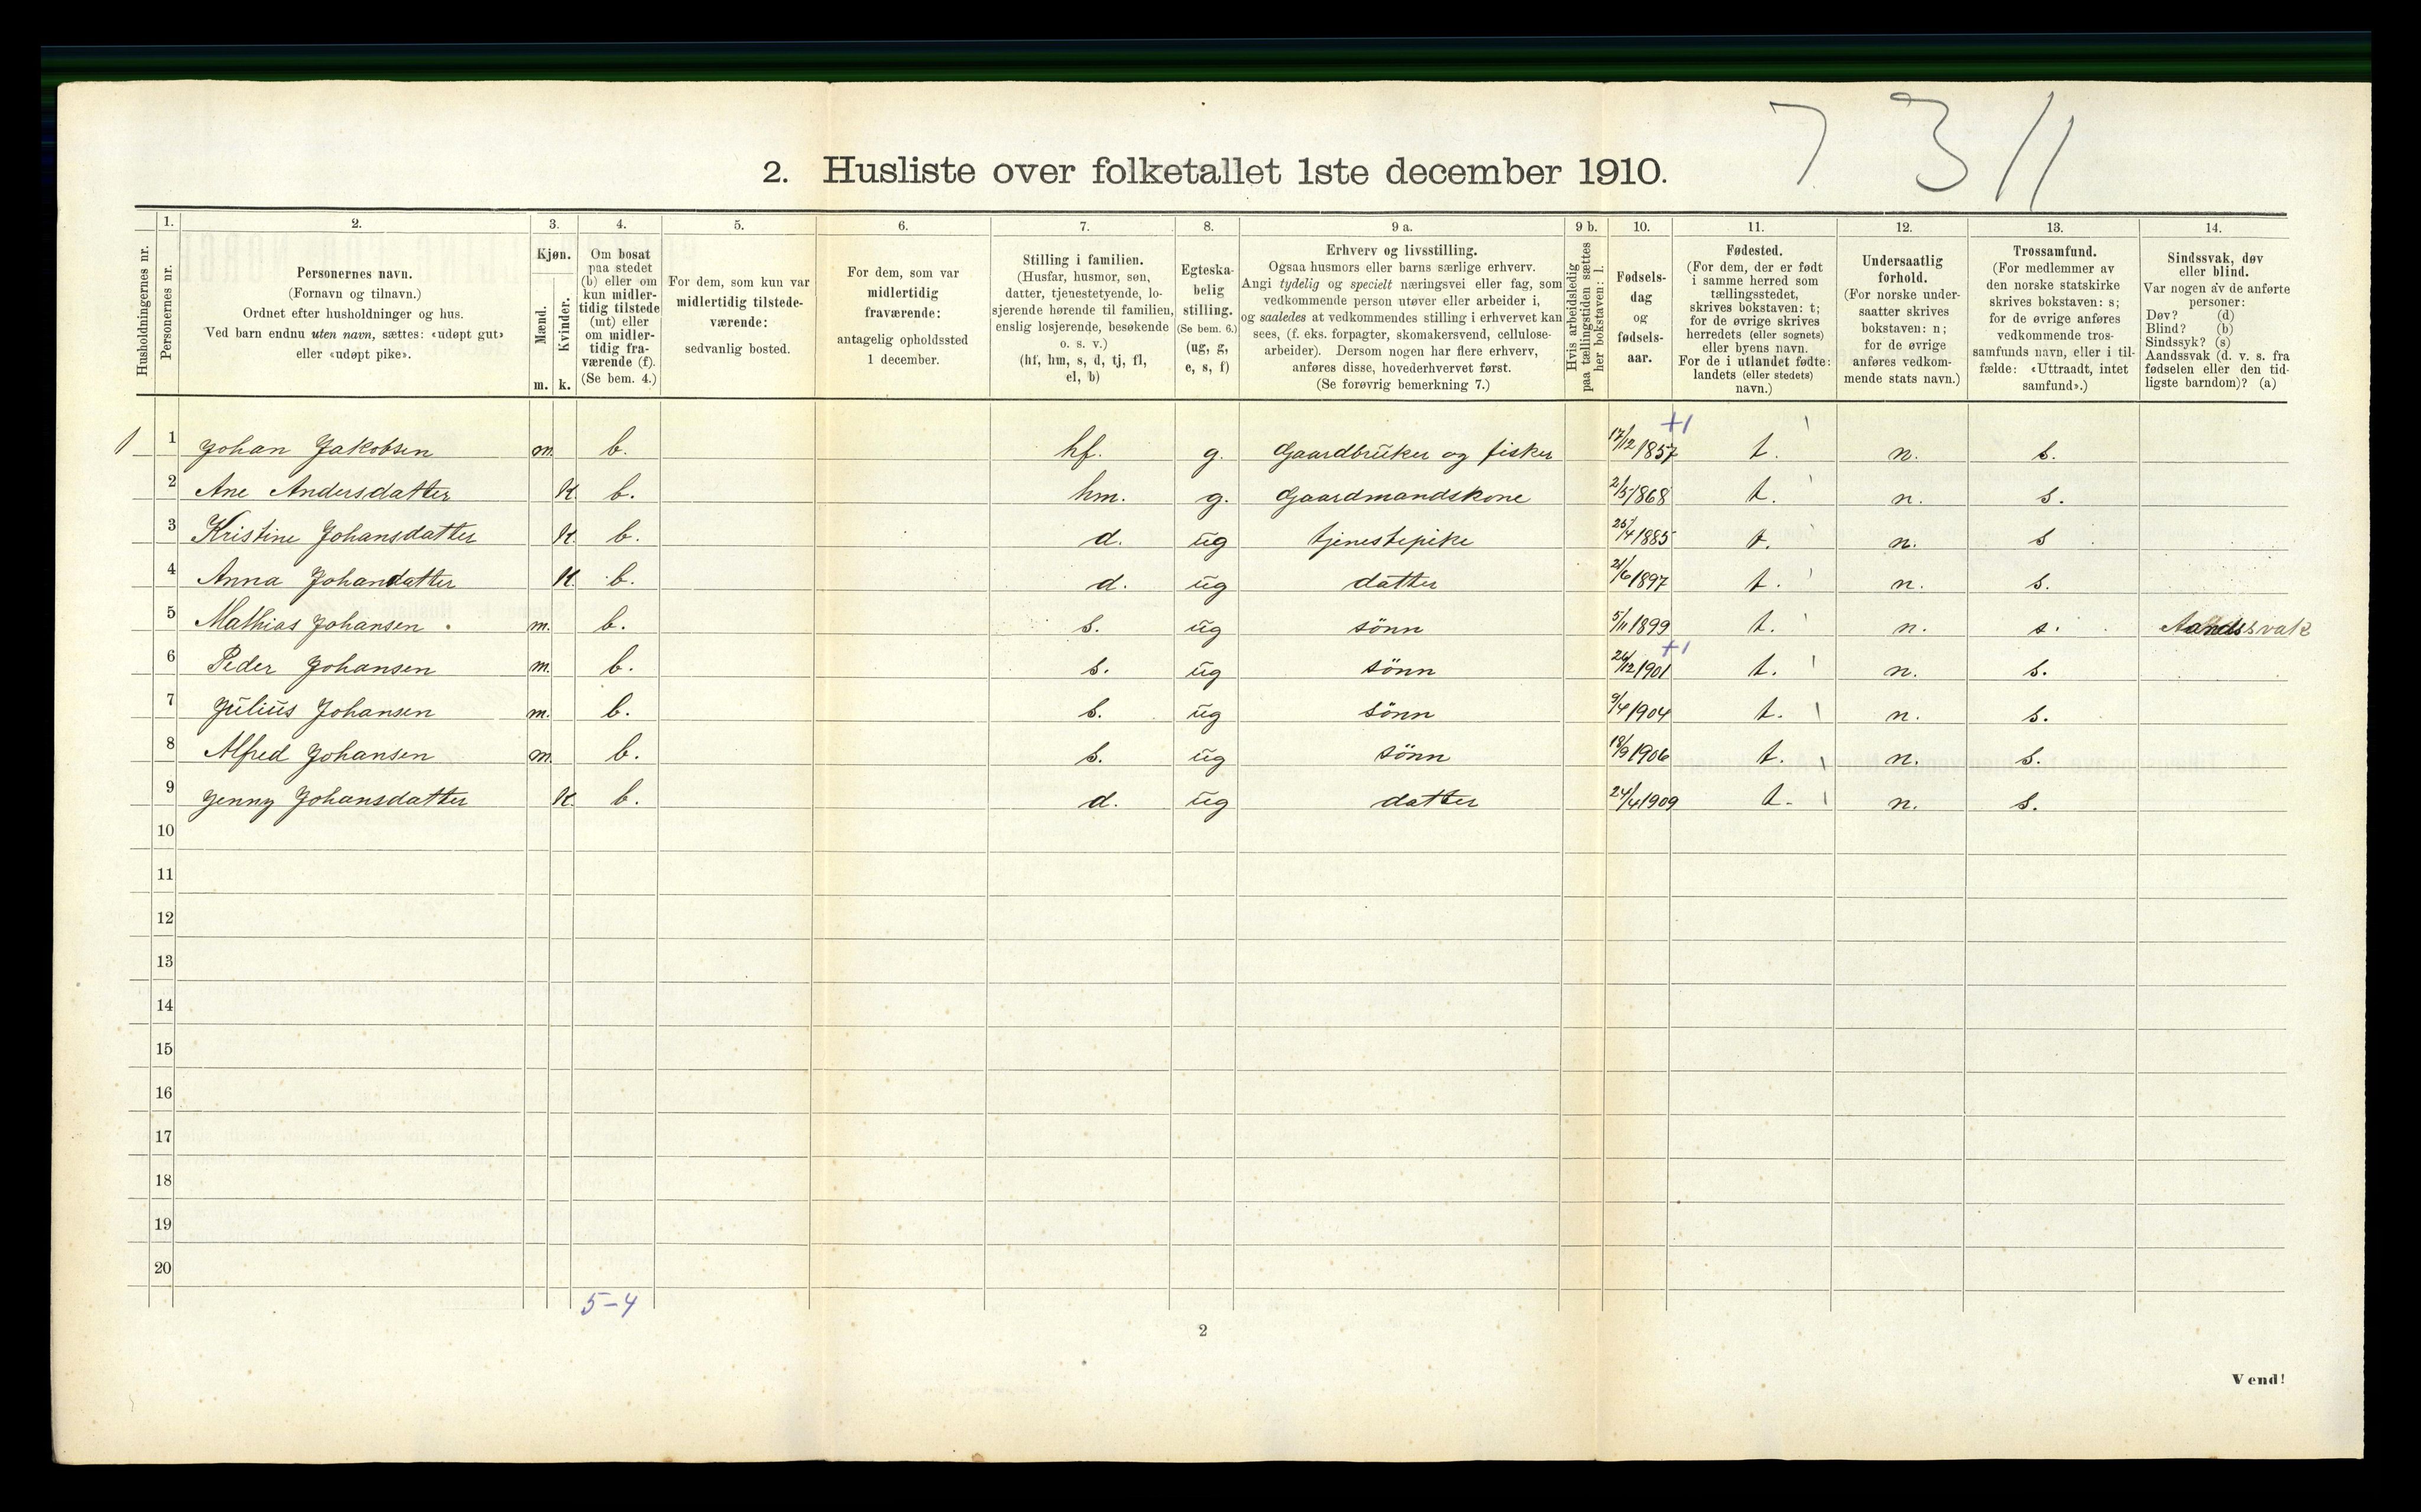 7 3 11
2. Husliste over folketallet 1ste december 1910.
Husholdningernes nr.
1.
Personernes nr.
2.
Personernes navn.
(Fornavn og tilnavn.)
Ordnet efter husholdninger og hus.
Ved barn endnu uten navn, sættes: «udøpt gut»
eller «udøpt pike».
3.
Kjøn.
Mænd.
m.
Kvinder.
k.
4.
Om bosat
paa stedet
(b) eller om
kun midler-
tidig tilstede
(mt) eller
om midler-
tidig fra-
værende (f).
(Se bem. 4.)
5.
For dem, som kun var
midlertidig tilstede-
værende:
sedvanlig bosted.
6.
For dem, som var
midlertidig
fraværende:
antagelig opholdssted
1 december.
7.
Stilling i familien.
(Husfar, husmor, søn,
datter, tjenestetyende, lo-
sjerende hørende til familien,
enslig losjerende, besøkende
o. s. v.)
(hf, hm, s, d, tj, fl,
el, b)
8.
Egteska-
belig
stilling.
(Se bem. 6.)
(ug, g,
e, s, f)
9 a.
Erhverv og livsstilling.
Ogsaa husmors eller barns særlige erhverv.
Angi tydelig og specielt næringsvei eller fag, som
vedkommende person utøver eller arbeider i,
og saaledes at vedkommendes stilling i erhvervet kan
sees, (f. eks. forpagter, skomakersvend, cellulose-
arbeider). Dersom nogen har flere erhverv,
anføres disse, hovederhvervet først.
(Se forøvrig bemerkning 7.)
9 b.
Hvis arbeidsledig
paa tællingstiden sættes
her bokstaven: l.
10.
Fødsels-
dag
og
fødsels-
aar.
11.
Fødested.
(For dem, der er født
i samme herred som
tællingsstedet,
skrives bokstaven: t;
for de øvrige skrives
herredets (eller sognets)
eller byens navn.
For de i utlandet fødte:
landets (eller stedets)
navn.)
12.
Undersaatlig
forhold.
(For norske under-
saatter skrives
bokstaven: n;
for de øvrige
anføres vedkom-
mende stats navn.)
13.
Trossamfund.
(For medlemmer av
den norske statskirke
skrives bokstaven: s;
for de øvrige anføres
vedkommende tros-
samfunds navn, eller i til-
fælde: «Uttraadt, intet
samfund».)
14.
Sindssvak, døv
eller blind.
Var nogen av de anførte
personer:
Døv? (d)
Blind? (b)
Sindssyk? (s)
Aandssvak (d. v. s. fra
fødselen eller den tid-
ligste barndom)? (a)
+1
1 1 Johan Jakobsen m. b. hf. g. Gaardbruker og fisker 17/12 1857 t. n. s.
2 Ane Andersdatter K. b. hm. g. Gaardmandskone 2/5 1868 t. n. s.
3 Kristine Johansdatter K. b. d. ug tjenestepike 25/4 1885 t. n. s
4 Anna Johandatter K. b. d. ug datter 21/6 1897 t. n. s.
5 Mathias Johansen . m. b. s. ug sönn 5/11 1899 t. n. s. Aandssvak
+1
6 Peder Johansen m. b. s. ug sönn 26/12 1901 t. n. s.
7 Julius Johansen m. b. s. ug sönn 9/4 1904 t. n. s.
8 Alfred Johansen m. b. s. ug sönn 18/9 1906 t. n. s.
9 Jenny Johansdatter K. b. d. ug datter 24/4 1909 t. n. s.
10
11
12
13
14
15
16
17
18
19
20
5-4
2
Vend!